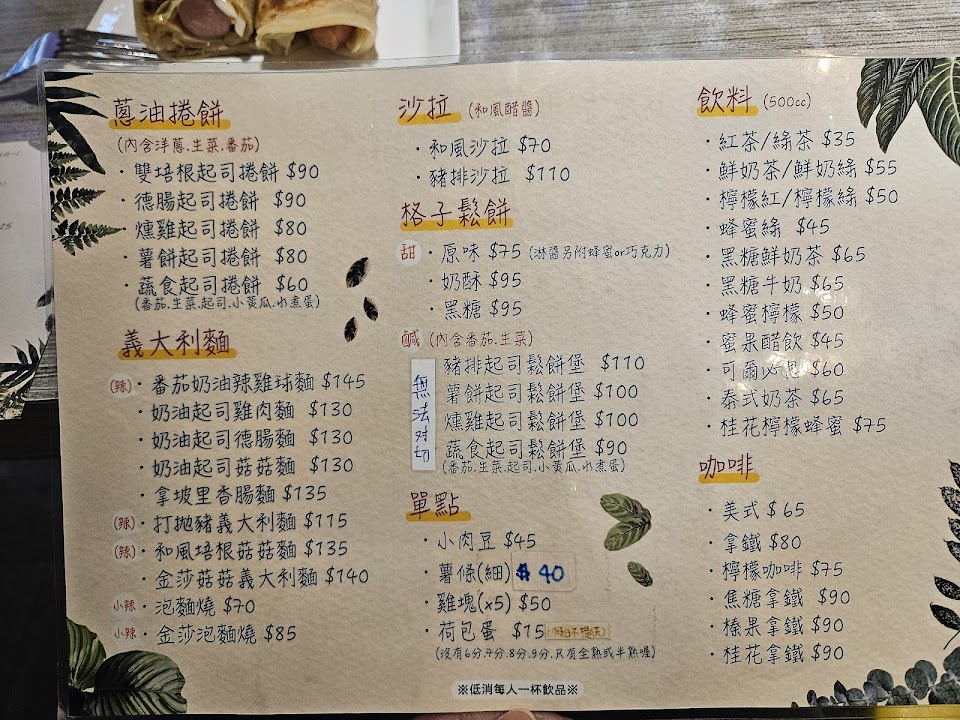 蔥油捲餅
(內含洋蔥.生菜.番茄)
・雙培根起司捲餅 $90
・德腸起司捲餅 $90
・燻雞起司捲餅 $80
・薯餅起司捲餅 $80
・蔬食起司捲餅 $60
(番茄.生菜.起司.小黃瓜.水煮蛋)
義大利麵
(辣)・番茄奶油辣雞球麵 $145
・奶油起司雞肉麵 $130
・奶油起司德腸麵 $130
・奶油起司菇菇麵 $130
・拿坡里香腸麵 $135
(辣)・打拋豬義大利麵 $115
(辣)・和風培根菇菇麵 $135
・金莎菇菇義大利麵 $140
小辣・泡麵燒 $70
小辣・金莎泡麵燒 $85
沙拉 (和風醋醬)
・和風沙拉 $70
・豬排沙拉 $110
格子鬆餅
甜・原味 $75 (淋醬另附蜂蜜or巧克力)
・奶酥 $95
・黑糖 $95
鹹 (內含番茄.生菜)
無法對切
豬排起司鬆餅堡 $110
薯餅起司鬆餅堡 $100
燻雞起司鬆餅堡 $100
蔬食起司鬆餅堡 $90
(番茄.生菜.起司.小黃瓜.水煮蛋)
單點
・小肉豆 $45
・薯條(細) $40
・雞塊(x5) $50
・荷包蛋 $15
(沒有6分.7分.8分.9分.只有全熟或半熟喔)
※低消每人一杯飲品※
飲料 (500cc)
・紅茶/綠茶 $35
・鮮奶茶/鮮奶綠 $55
・檸檬紅/檸檬綠 $50
・蜂蜜綠 $45
・黑糖鮮奶茶 $65
・黑糖牛奶 $65
・蜂蜜檸檬 $50
・蜜果醋飲 $45
・可爾必思 $60
・泰式奶茶 $65
・桂花檸檬蜂蜜 $75
咖啡
・美式 $65
・拿鐵 $80
・檸檬咖啡 $75
・焦糖拿鐵 $90
・榛果拿鐵 $90
・桂花拿鐵 $90